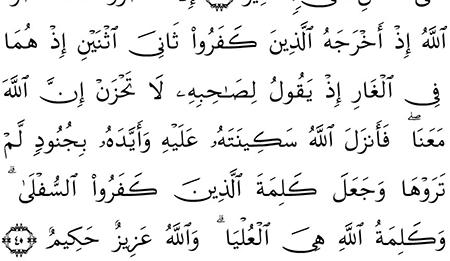 ٱللَّهُ إِذْ أَخْرَجَهُ ٱلَّذِينَ كَفَرُوا۟ ثَانِىَ ٱثْنَيْنِ إِذْ هُمَا
فِى ٱلْغَارِ إِذْ يَقُولُ لِصَـٰحِبِهِۦ لَا تَحْزَنْ إِنَّ ٱللَّهَ
مَعَنَا ۖ فَأَنزَلَ ٱللَّهُ سَكِينَتَهُۥ عَلَيْهِ وَأَيَّدَهُۥ بِجُنُودٍۢ لَّمْ
تَرَوْهَا وَجَعَلَ كَلِمَةَ ٱلَّذِينَ كَفَرُوا۟ ٱلسُّفْلَىٰ ۗ
وَكَلِمَةُ ٱللَّهِ هِىَ ٱلْعُلْيَا ۗ وَٱللَّهُ عَزِيزٌ حَكِيمٌ ﴿٤٥﴾